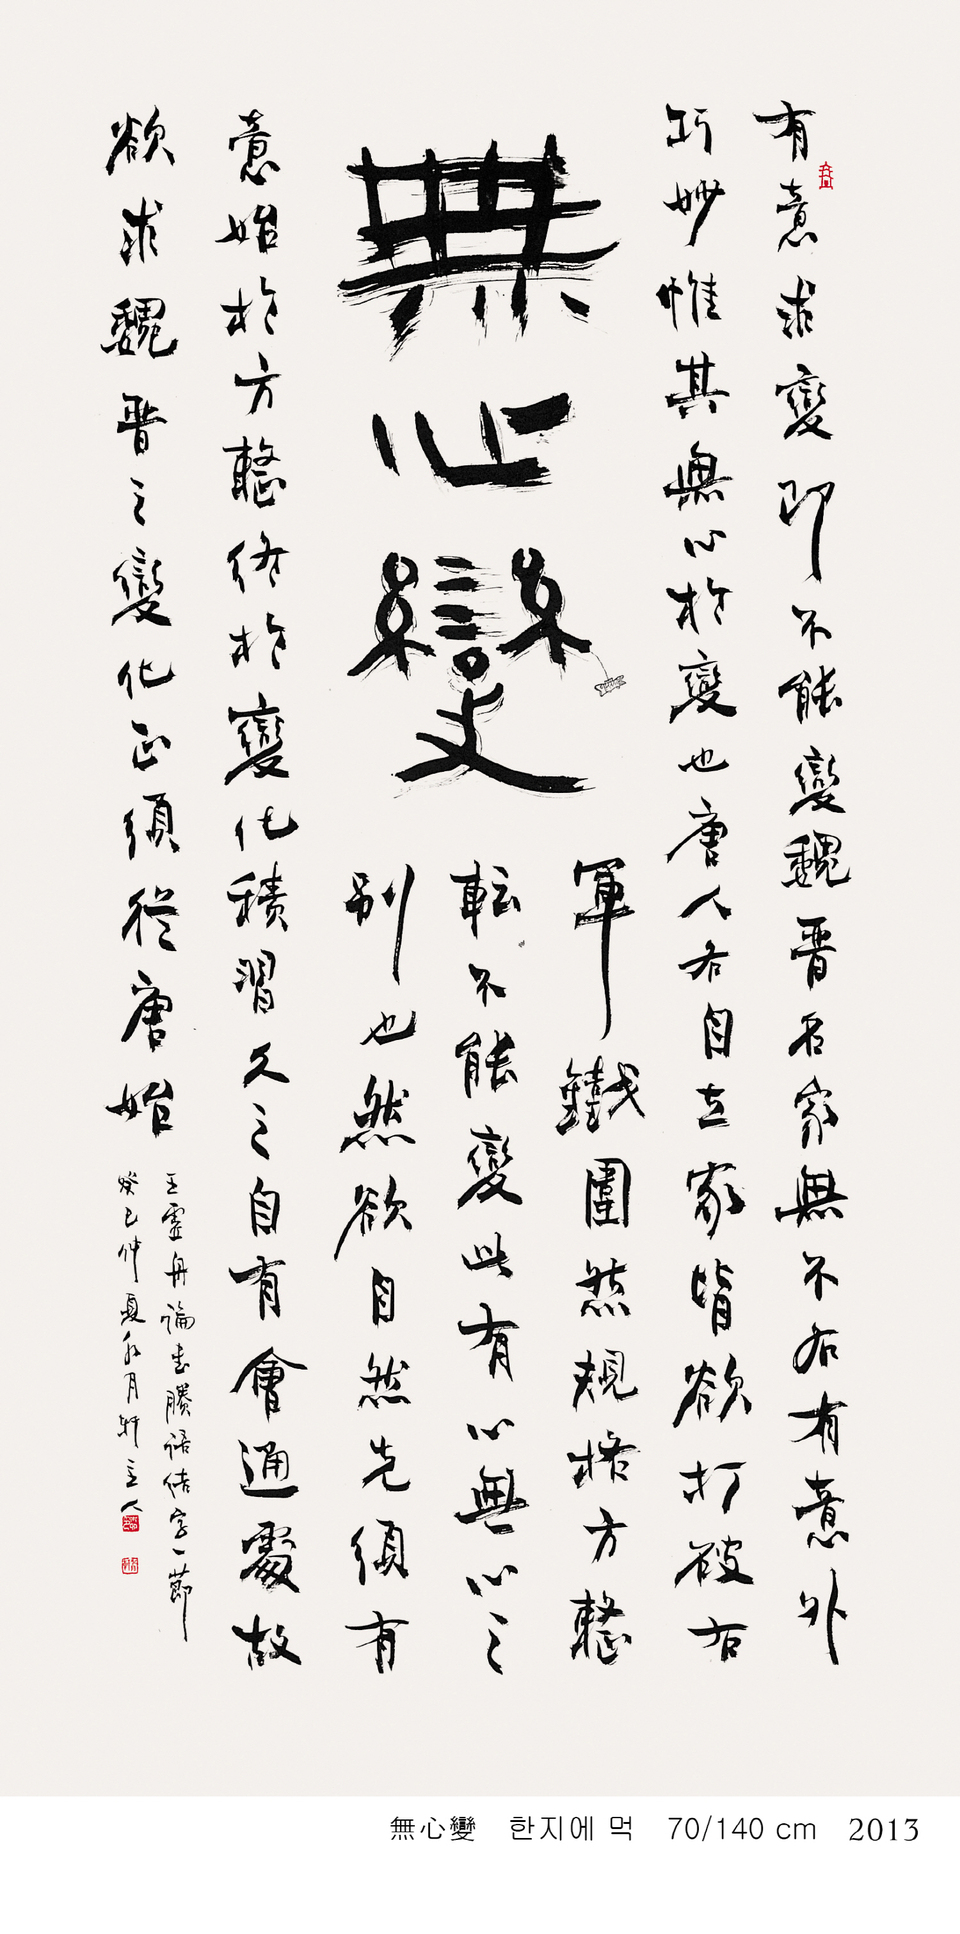 有意求變即不能變魏晋名家無不各有意外
巧妙惟其無心於變也唐人各自立家皆欲打破右
無心變
軍鐵圍然規格方整
転不能變此有心無心之
别也然欲自然先須有
意始於方整終於變化積習久之自有會通處故
欲求魏晋之變化正須從唐始
王虛舟論書賸語結字一節
癸巳仲夏水月軒主人
無心變 한지에 먹 70/140 cm 2013